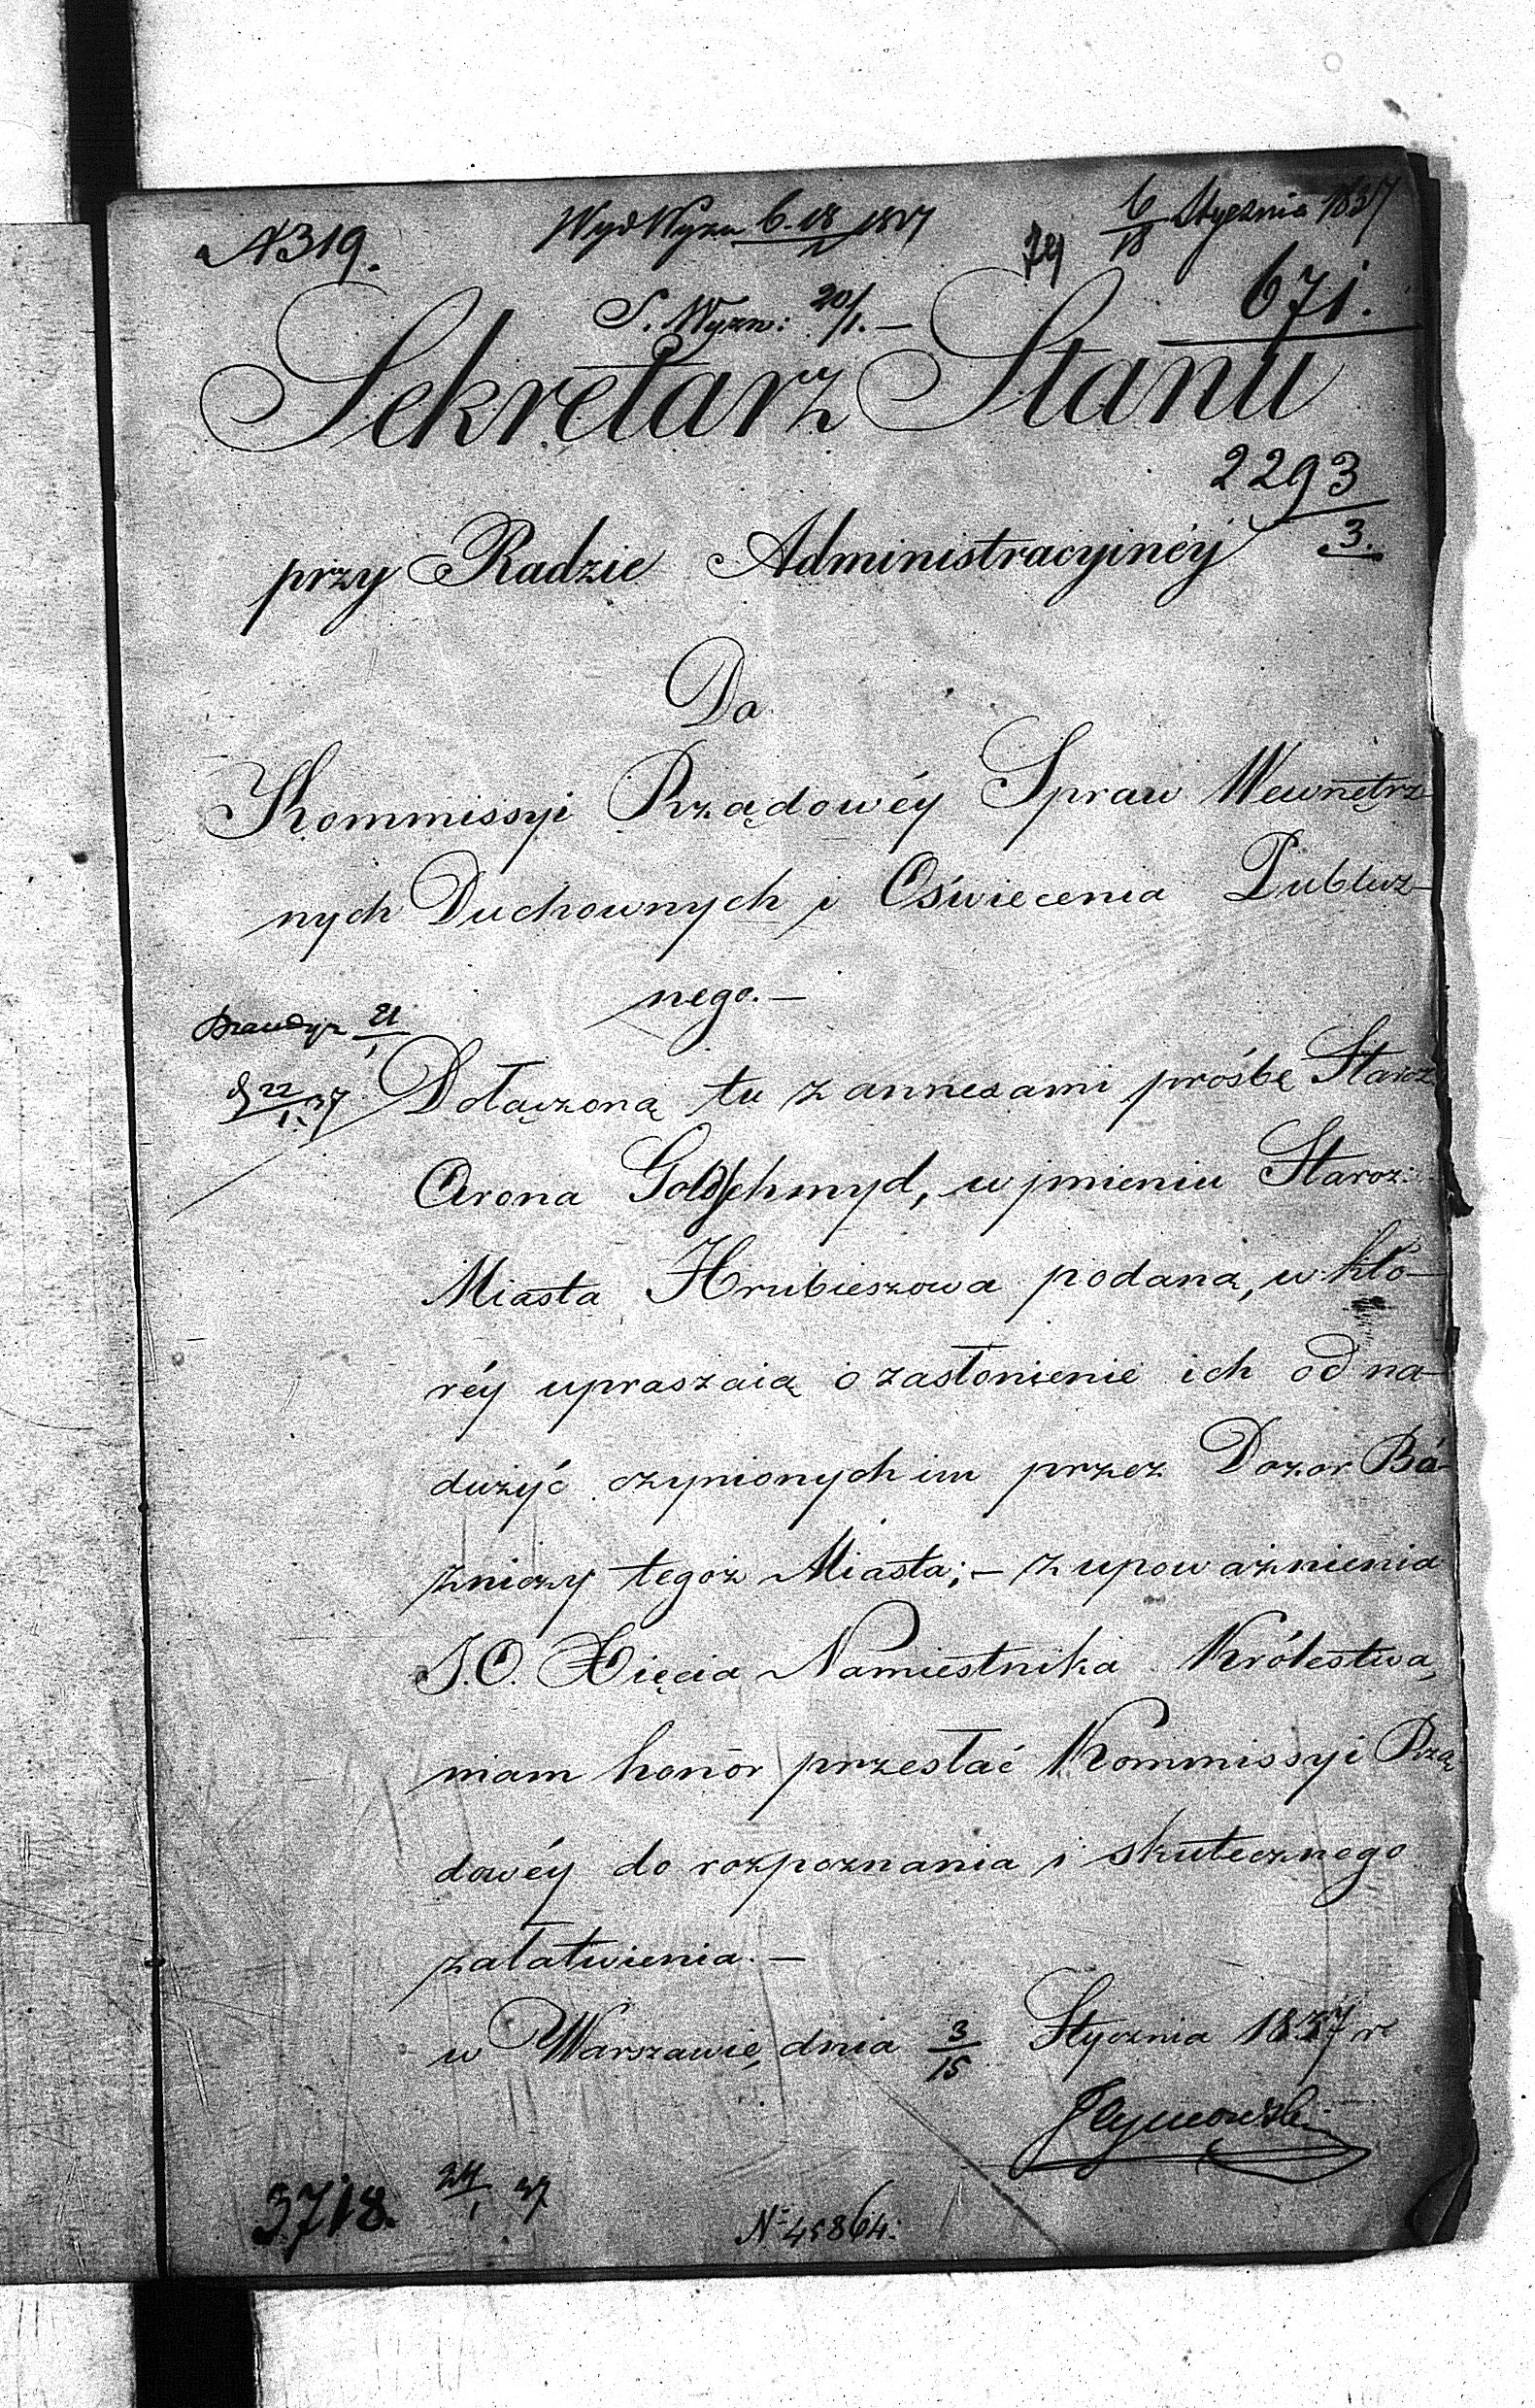 N 319.
Wyd Wyzn 6.18/1 1837
6/18 Stycznia 1837
S. Wyzn: 20/1. —
671.
Sekretarz Stanu
2293/3.
przy Radzie Administracyinéy
Do
Kommissyi Rządowéy Spraw Wewnętrz
nych Duchownych i Oświecenia Publicz-
nego. —
21/1
22/1. 37
Dołączoną tu z annexami prośbę Staroz
Arona Goldschmyd, w jmieniu Staroz:
Miasta Hrubieszowa podaną, w któ-
réy upraszaią o zasłonienie ich od na-
dużyć czynionych im przez Dozor Bó-
żniczy tegoż Miasta; — z upoważnienia
J.O. Xięcia Namiestnika Królestwa,
mam honor przesłać Kommissyi Rzą
dowéy do rozpoznania i skutecznego
załatwienia. —
w Warszawie, dnia 3/15 Stycznia 1837 r
3718. 24/1 37
Nº 45864.